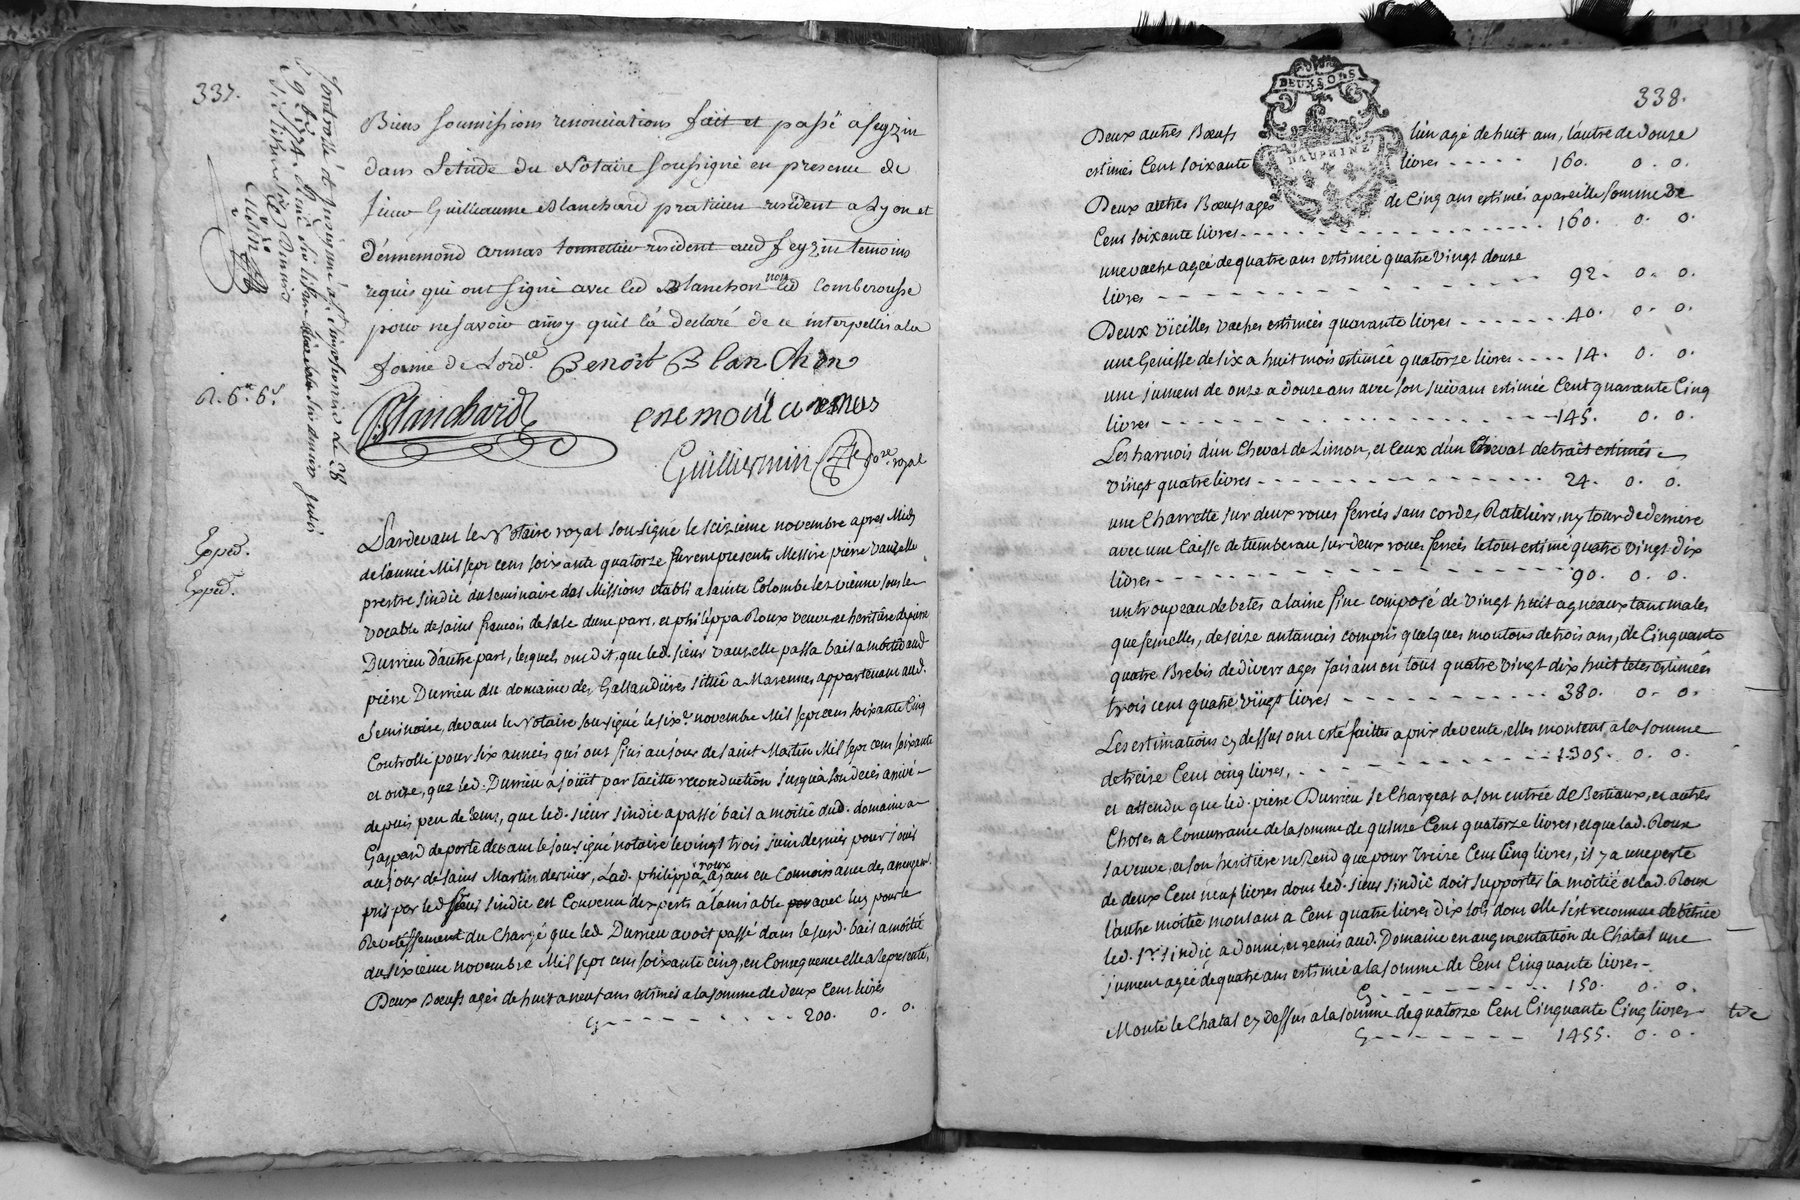 337.
Biens soumissions renonciations fait et passé a feyzin
dans L'étude du Notaire soussigné en presence de
sieur Guilleaume Blanchard praticien resident a Lyon et
d'ennemond armas tonnellier resident aud feyzin temoins
requis qui ont signé avec led Blanchon non led Comberousse
pour ne savoir ainsy qu'il l'a declaré de ce interpellés a la
forme de Lord.ce Benoit Blanchon
R. 6.s 6.d
Blanchard enemont armas
Guillermin No.re royal
Exped.
Exped.
Pardevant le Notaire royal soussigné le seizieme novembre apres Midy
de l'année Mil sept cens soixante quatorze furent presents Messire pierre vauzelle
prestre sindic du seminaire des Missions etabli a sainte Colombe lez vienne sous le
vocable de saint francois de sale d'une part, et philippa Roux veuve et heritiere de pierre
Durrieu d'autre part, lesquels ont dit, que led. sieur vauzelle passa bail a moitié aud
pierre Durrieu du domaine des Gallandieres situé a Marennes appartenant aud.
Seminaire, devant le Notaire soussigné le six.e novembre Mil sept cens soixante Cinq
Controllé pour six années qui ont fini au jour de saint Martin Mil sept cens soixante
et onze, que led. Durrieu a joüit par tacitte reconduction jusqu'a son decés arrivé
depuis peu de tems, que led. sieur sindic a passé bail a moitié dud. domaine a
Gaspard deporte devant le soussigné notaire le vingt trois juin dernier pour jouir
au jour de saint Martin dernier, Lad. philippa roux ayant eu Connoissance des arrangem.s
pris par led sieur sindic est Convenu d'experts a l'amiable avec luy pour le
Revetissement du Chargé que led Durrieu avoit passé dans le susd. bail a moitié
du sixieme novembre Mil sept cens soixante cinq, en Consequence elle a representé,
Deux Boeufs agés de huit a neuf ans estimés a la somme de deux Cent livres
Cy - - - - - - - - 200. 0. 0.
DEUX SOLS
DAUPHINE
338.
Deux autres Boeufs l'un agé de huit ans, l'autre de douze
estimés Cent soixante livres - - - - - 160. 0. 0.
Deux autres Boeufs agés de Cinq ans estimés a pareille somme de
Cent soixante livres - - - - - - - - - - 160. 0. 0.
une vache agée de quatre ans estimée quatre vingt douze
livres - - - - - - - - - - 92. 0. 0.
Deux vieilles vaches estimées quarante livres - - - - - - 40. 0. 0.
une Genisse de six a huit mois estimée quatorze livres - - - - 14. 0. 0.
une jument de onze a douze ans avec son suivant estimée Cent quarante Cinq
livres - - - - - - - - - - 145. 0. 0.
Les harnois d'un Cheval de Limon, et Ceux d'un Cheval de trait estimés
vingt quatre livres - - - - - - - - - - 24. 0. 0.
une Charrette sur deux roues ferrées sans cordes, Rateliers, ny tour de derriere
avec une Caisse de tumberau sur deux roues ferrées le tout estimé quatre vingt dix
livres - - - - - - - - - - 90. 0. 0.
un troupeau de betes a laine fine composé de vingt huit agneaux tant males
que femelles, de seize antanais compris quelques moutons de trois ans, de Cinquante
quatre Brebis de divers ages faisant en tout quatre vingt dix huit tetes estimées
trois cent quatre vingt livres - - - - - - - - 380. 0. 0.
Les estimations cy dessus ont esté faittes a prix de vente, elles montent a la somme
de treize Cent cinq livres, - - - - - - - - 1305. 0. 0.
et attendu que led. pierre Durrieu se Chargeat a son entrée de Bestiaux, et autres
Choses a Concurrance de la somme de quinze Cent quatorze livres, et que lad. Roux
sa veuve, a son heritiere ne Rend que pour treize Cent Cinq livres, il y a une perte
de deux Cent neuf livres dont led. sieur sindic doit supporter la moitié et lad. Roux
l'autre moitié montant a Cent quatre livres dix sols dont elle s'est reconnue debitrice
led. Sr. sindic a donné, et remis aud. Domaine en augmentation de Chatal une
jument agée de quatre ans estimée a la somme de Cent Cinquante livres -
Cy - - - - - - - - 150. 0. 0.
Monte le Chatal cy dessus a la somme de quatorze Cent Cinquante Cinq livres
Cy - - - - - - - - 1455. 0. 0.